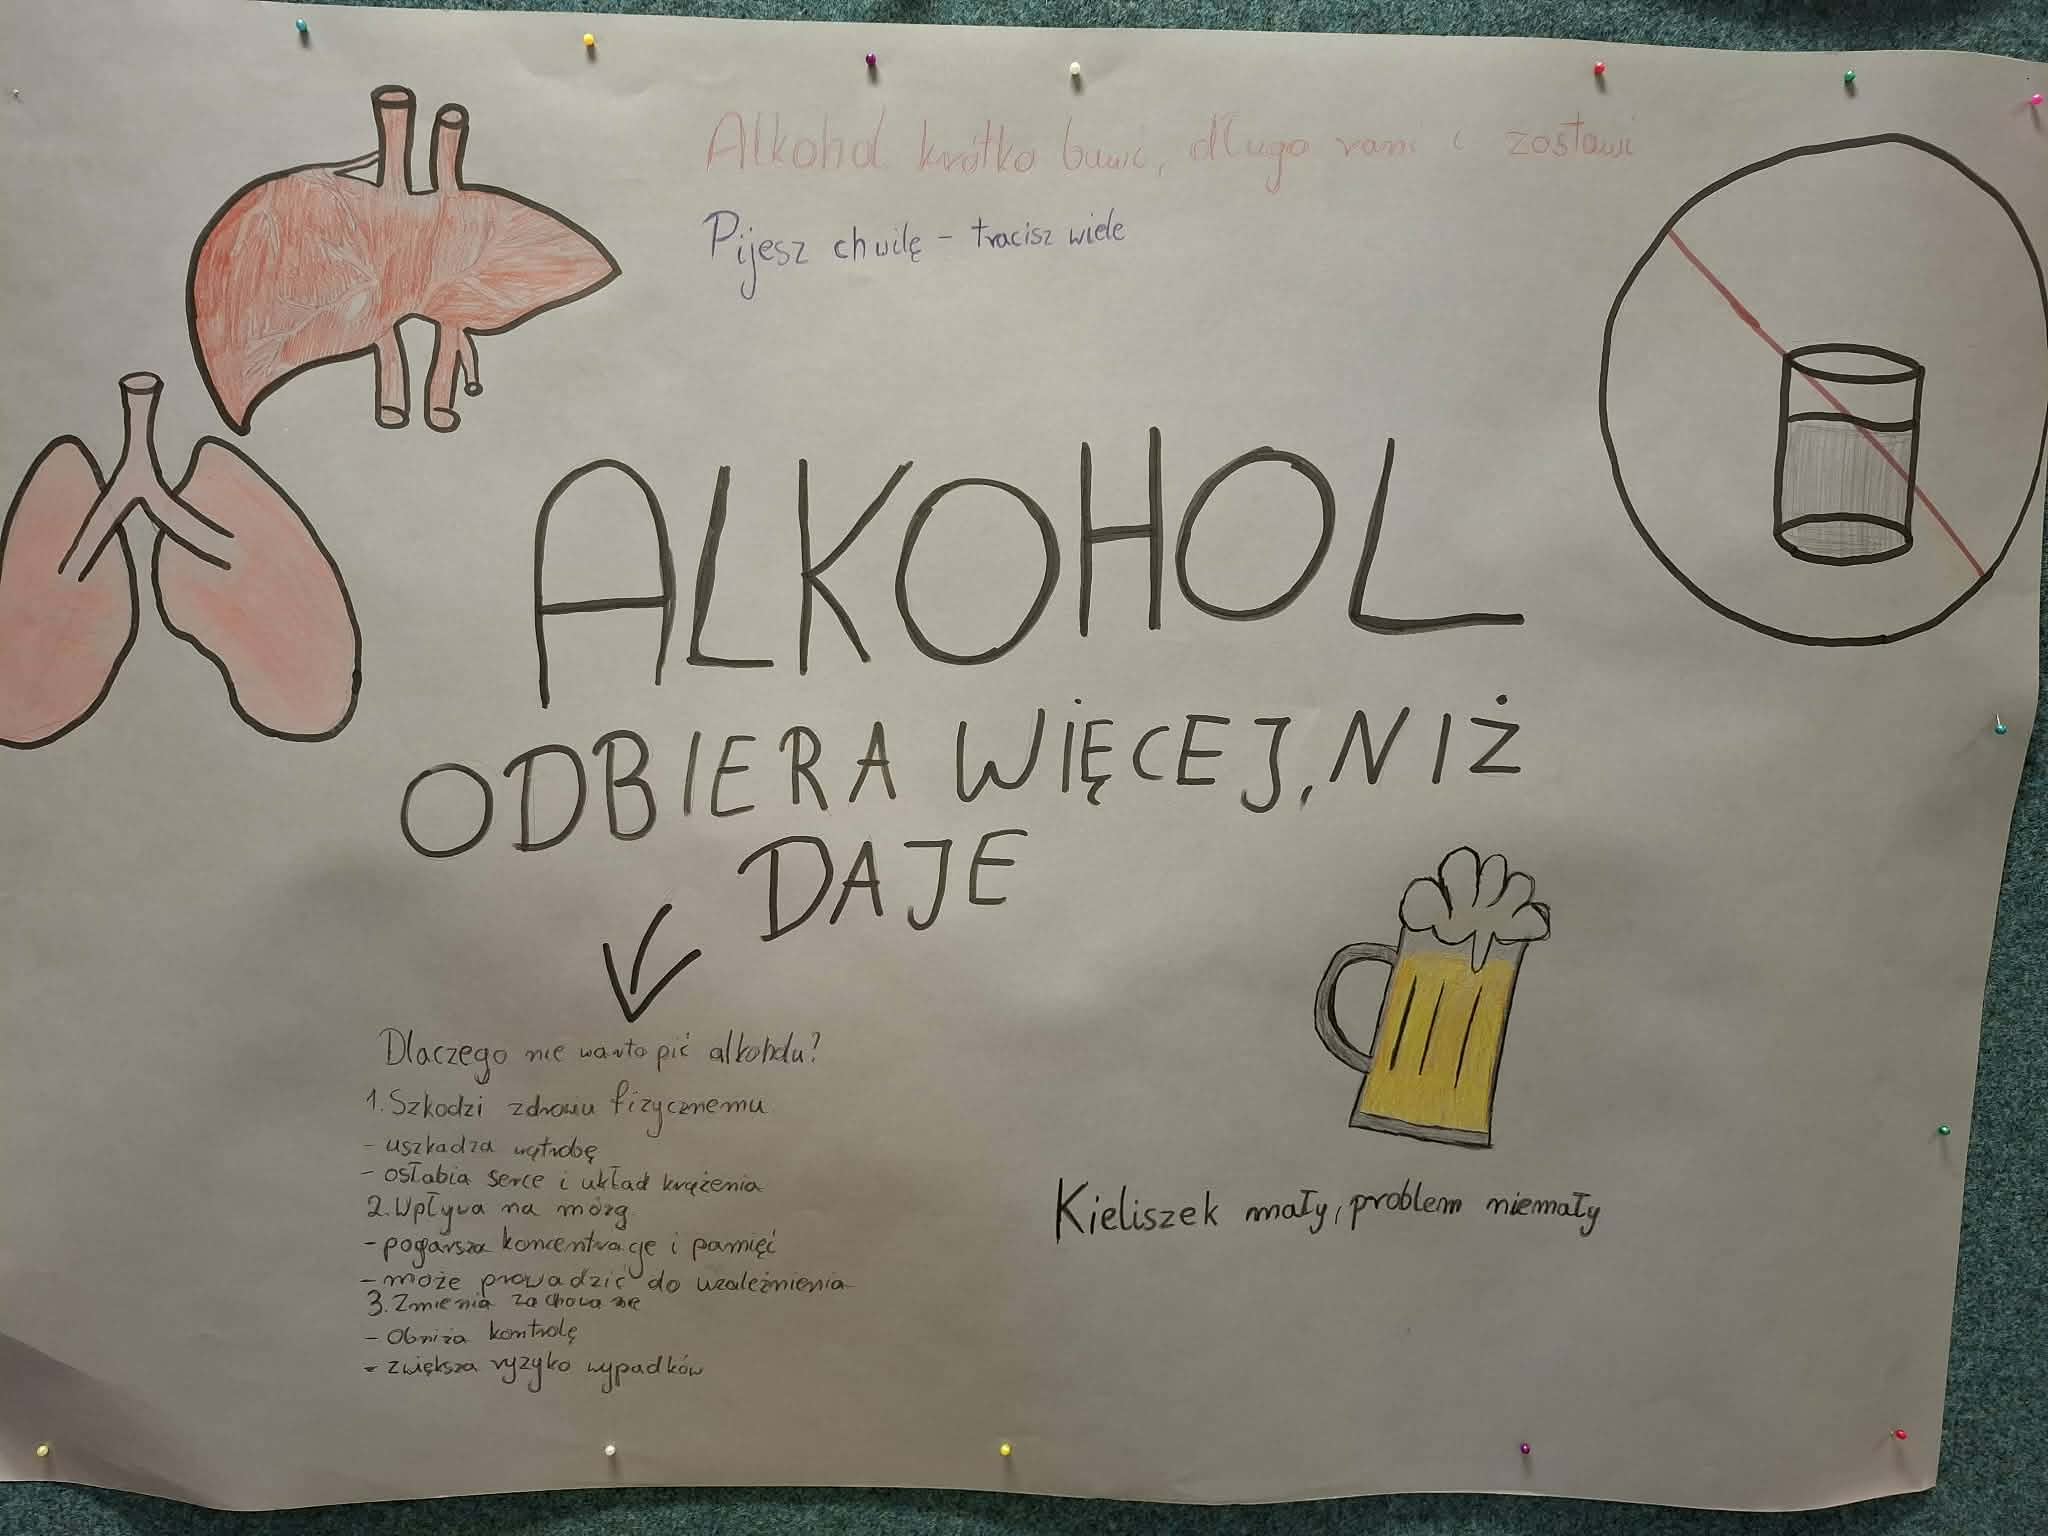 Alkohol krótko bawi, długo rani i zostawi
Pijesz chwilę - tracisz wiele
ALKOHOL
ODBIERA WIĘCEJ, NIŻ
DAJE
Dlaczego nie warto pić alkoholu?
1. Szkodzi zdrowiu fizycznemu
- uszkadza wątrobę
- osłabia serce i układ krążenia
2. Wpływa na mózg
- pogarsza koncentrację i pamięć
- może prowadzić do uzależnienia
3. Zmienia zachowanie
- Obniża kontrolę
- zwiększa ryzyko wypadków
Kieliszek mały, problem niemały